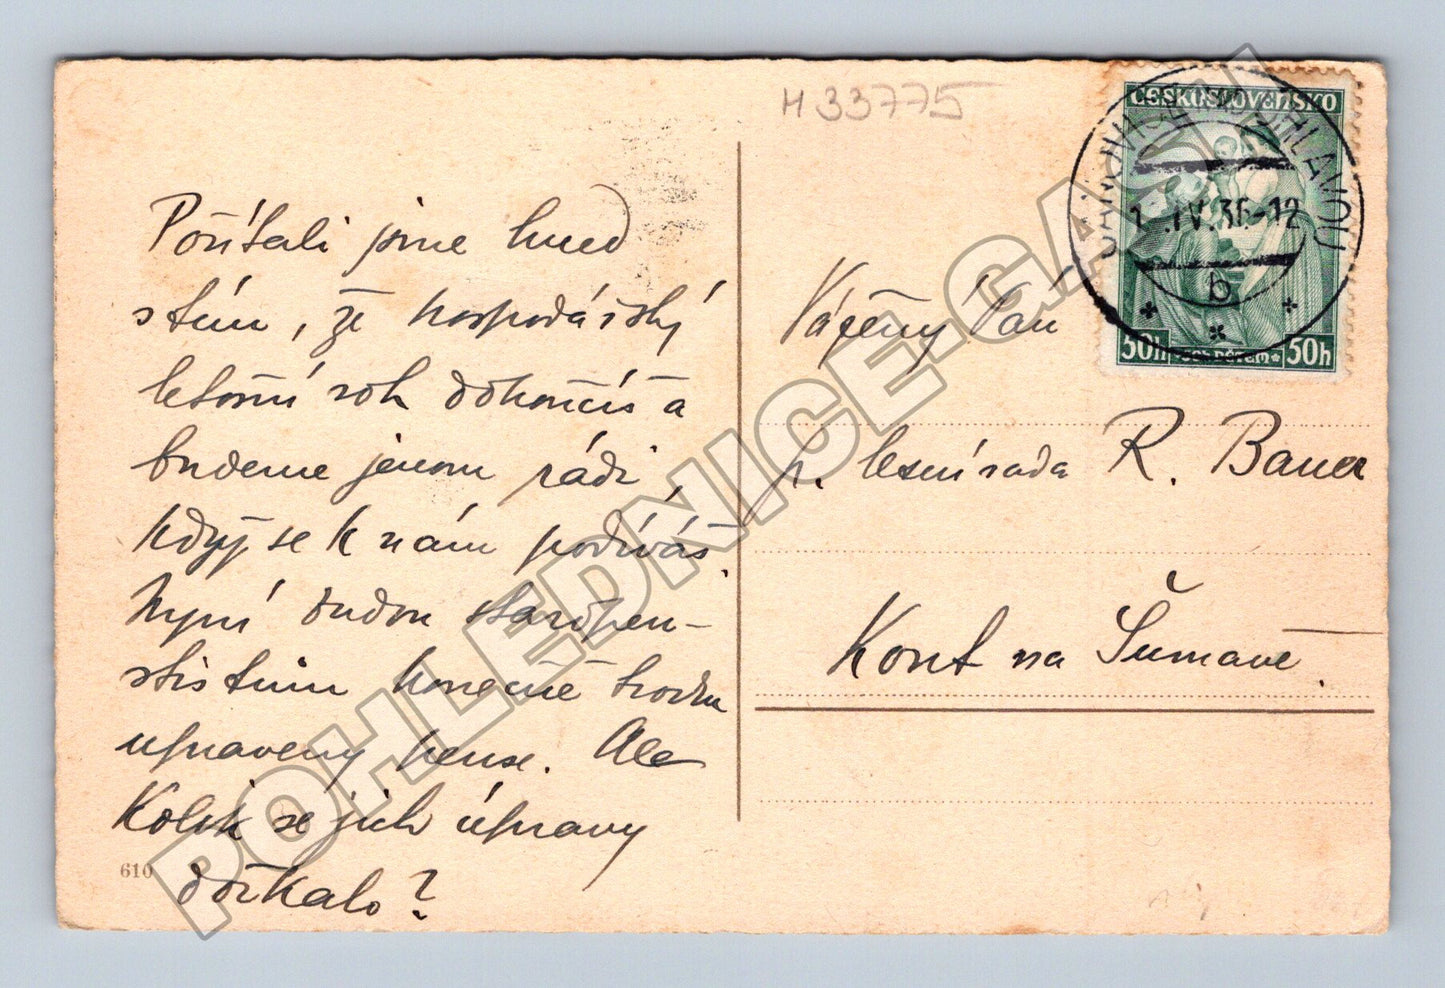 H 33775
ČESKOSLOVENSKO
JANOVICE NAD ÚHLAVOU
1.IV.36-12
b
50h DĚTEM 50h
Počítali jsme hned
s tím, že hospodářský
letošní rok dokončíš a
budeme jenom rádi,
když se k nám podíváš.
Nyní budou staropen-
sistům konečně trochu
upraveny pense. Ale
Kolik se jich úpravy
dočkalo?
610
Vážený Pán
p. lesní rada R. Bauer
Kout na Šumavě.
POHLEDNICE-GA